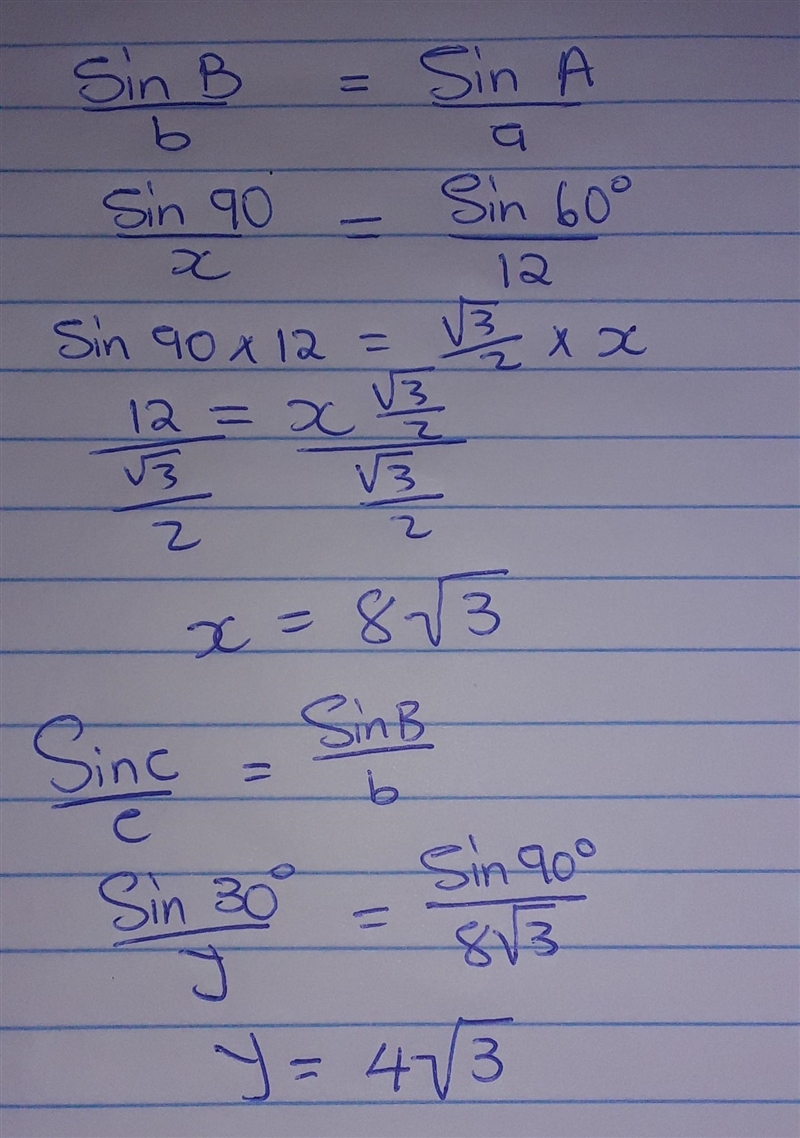 Sin B / b = Sin A / a
Sin 90 / x = Sin 60° / 12
Sin 90 × 12 = √3/2 × x
12 / (√3/2) = x √3/2 / (√3/2)
x = 8√3
Sin C / c = Sin B / b
Sin 30° / y = Sin 90° / 8√3
y = 4√3